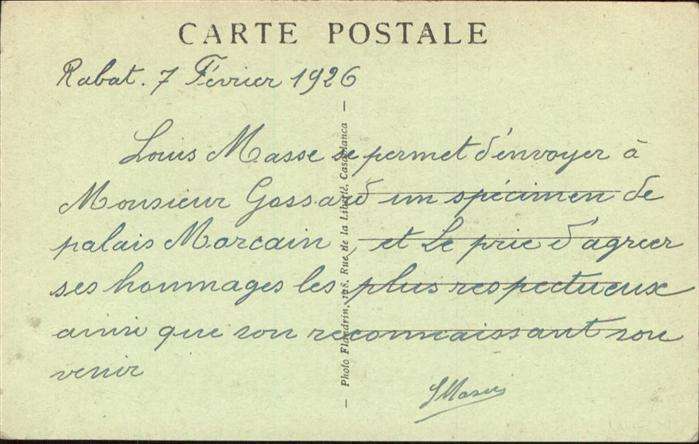 CARTE POSTALE
Rabat. 7 Février 1926
Louis Masse se permet d'envoyer à
Monsieur Gossard un spécimen de
palais Marcain, et le prie d'agreer
ses hommages les plus respectueux
ainsi que son reconnaissant sou
venir
LMasse
— Photo Flandrin, 128, Rue de la Liberté, Casablanca —